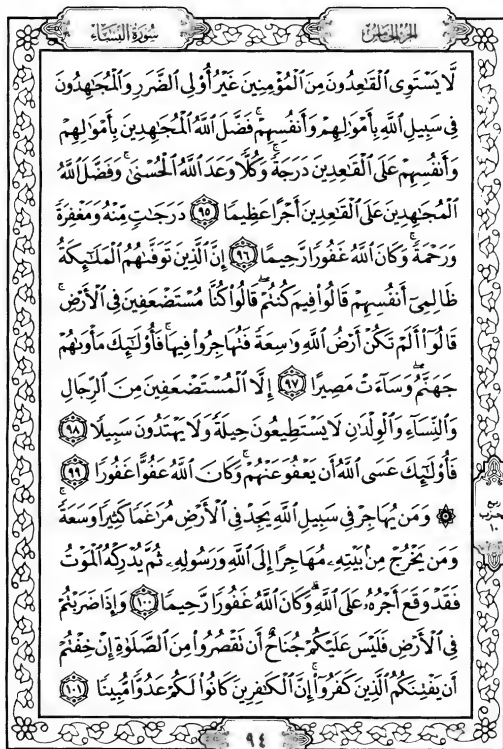 سُورَةُ النِّسَاءِ
الجُزْءُ الخَامِسُ
لَّا يَسْتَوِى ٱلْقَٰعِدُونَ مِنَ ٱلْمُؤْمِنِينَ غَيْرُ أُو۟لِى ٱلضَّرَرِ وَٱلْمُجَٰهِدُونَ
فِى سَبِيلِ ٱللَّهِ بِأَمْوَٰلِهِمْ وَأَنفُسِهِمْ ۚ فَضَّلَ ٱللَّهُ ٱلْمُجَٰهِدِينَ بِأَمْوَٰلِهِمْ
وَأَنفُسِهِمْ عَلَى ٱلْقَٰعِدِينَ دَرَجَةً ۚ وَكُلًّا وَعَدَ ٱللَّهُ ٱلْحُسْنَىٰ ۚ وَفَضَّلَ ٱللَّهُ
ٱلْمُجَٰهِدِينَ عَلَى ٱلْقَٰعِدِينَ أَجْرًا عَظِيمًا ٩٥ دَرَجَٰتٍ مِّنْهُ وَمَغْفِرَةً
وَرَحْمَةً ۚ وَكَانَ ٱللَّهُ غَفُورًا رَّحِيمًا ٩٦ إِنَّ ٱلَّذِينَ تَوَفَّىٰهُمُ ٱلْمَلَٰٓئِكَةُ
ظَالِمِىٓ أَنفُسِهِمْ قَالُوا۟ فِيمَ كُنتُمْ ۖ قَالُوا۟ كُنَّا مُسْتَضْعَفِينَ فِى ٱلْأَرْضِ ۚ
قَالُوٓا۟ أَلَمْ تَكُنْ أَرْضُ ٱللَّهِ وَٰسِعَةً فَتُهَاجِرُوا۟ فِيهَا ۚ فَأُو۟لَٰٓئِكَ مَأْوَىٰهُمْ
جَهَنَّمُ ۖ وَسَآءَتْ مَصِيرًا ٩٧ إِلَّا ٱلْمُسْتَضْعَفِينَ مِنَ ٱلرِّجَالِ
وَٱلنِّسَآءِ وَٱلْوِلْدَٰنِ لَا يَسْتَطِيعُونَ حِيلَةً وَلَا يَهْتَدُونَ سَبِيلًا ٩٨
فَأُو۟لَٰٓئِكَ عَسَى ٱللَّهُ أَن يَعْفُوَ عَنْهُمْ ۚ وَكَانَ ٱللَّهُ عَفُوًّا غَفُورًا ٩٩
۞ وَمَن يُهَاجِرْ فِى سَبِيلِ ٱللَّهِ يَجِدْ فِى ٱلْأَرْضِ مُرَٰغَمًا كَثِيرًا وَسَعَةً ۚ
وَمَن يَخْرُجْ مِنۢ بَيْتِهِۦ مُهَاجِرًا إِلَى ٱللَّهِ وَرَسُولِهِۦ ثُمَّ يُدْرِكْهُ ٱلْمَوْتُ
فَقَدْ وَقَعَ أَجْرُهُۥ عَلَى ٱللَّهِ ۗ وَكَانَ ٱللَّهُ غَفُورًا رَّحِيمًا ١٠٠ وَإِذَا ضَرَبْتُمْ
فِى ٱلْأَرْضِ فَلَيْسَ عَلَيْكُمْ جُنَاحٌ أَن تَقْصُرُوا۟ مِنَ ٱلصَّلَوٰةِ إِنْ خِفْتُمْ
أَن يَفْتِنَكُمُ ٱلَّذِينَ كَفَرُوٓا۟ ۚ إِنَّ ٱلْكَٰفِرِينَ كَانُوا۟ لَكُمْ عَدُوًّا مُّبِينًا ١٠١
ربع
الحزب
١٠
٩٤